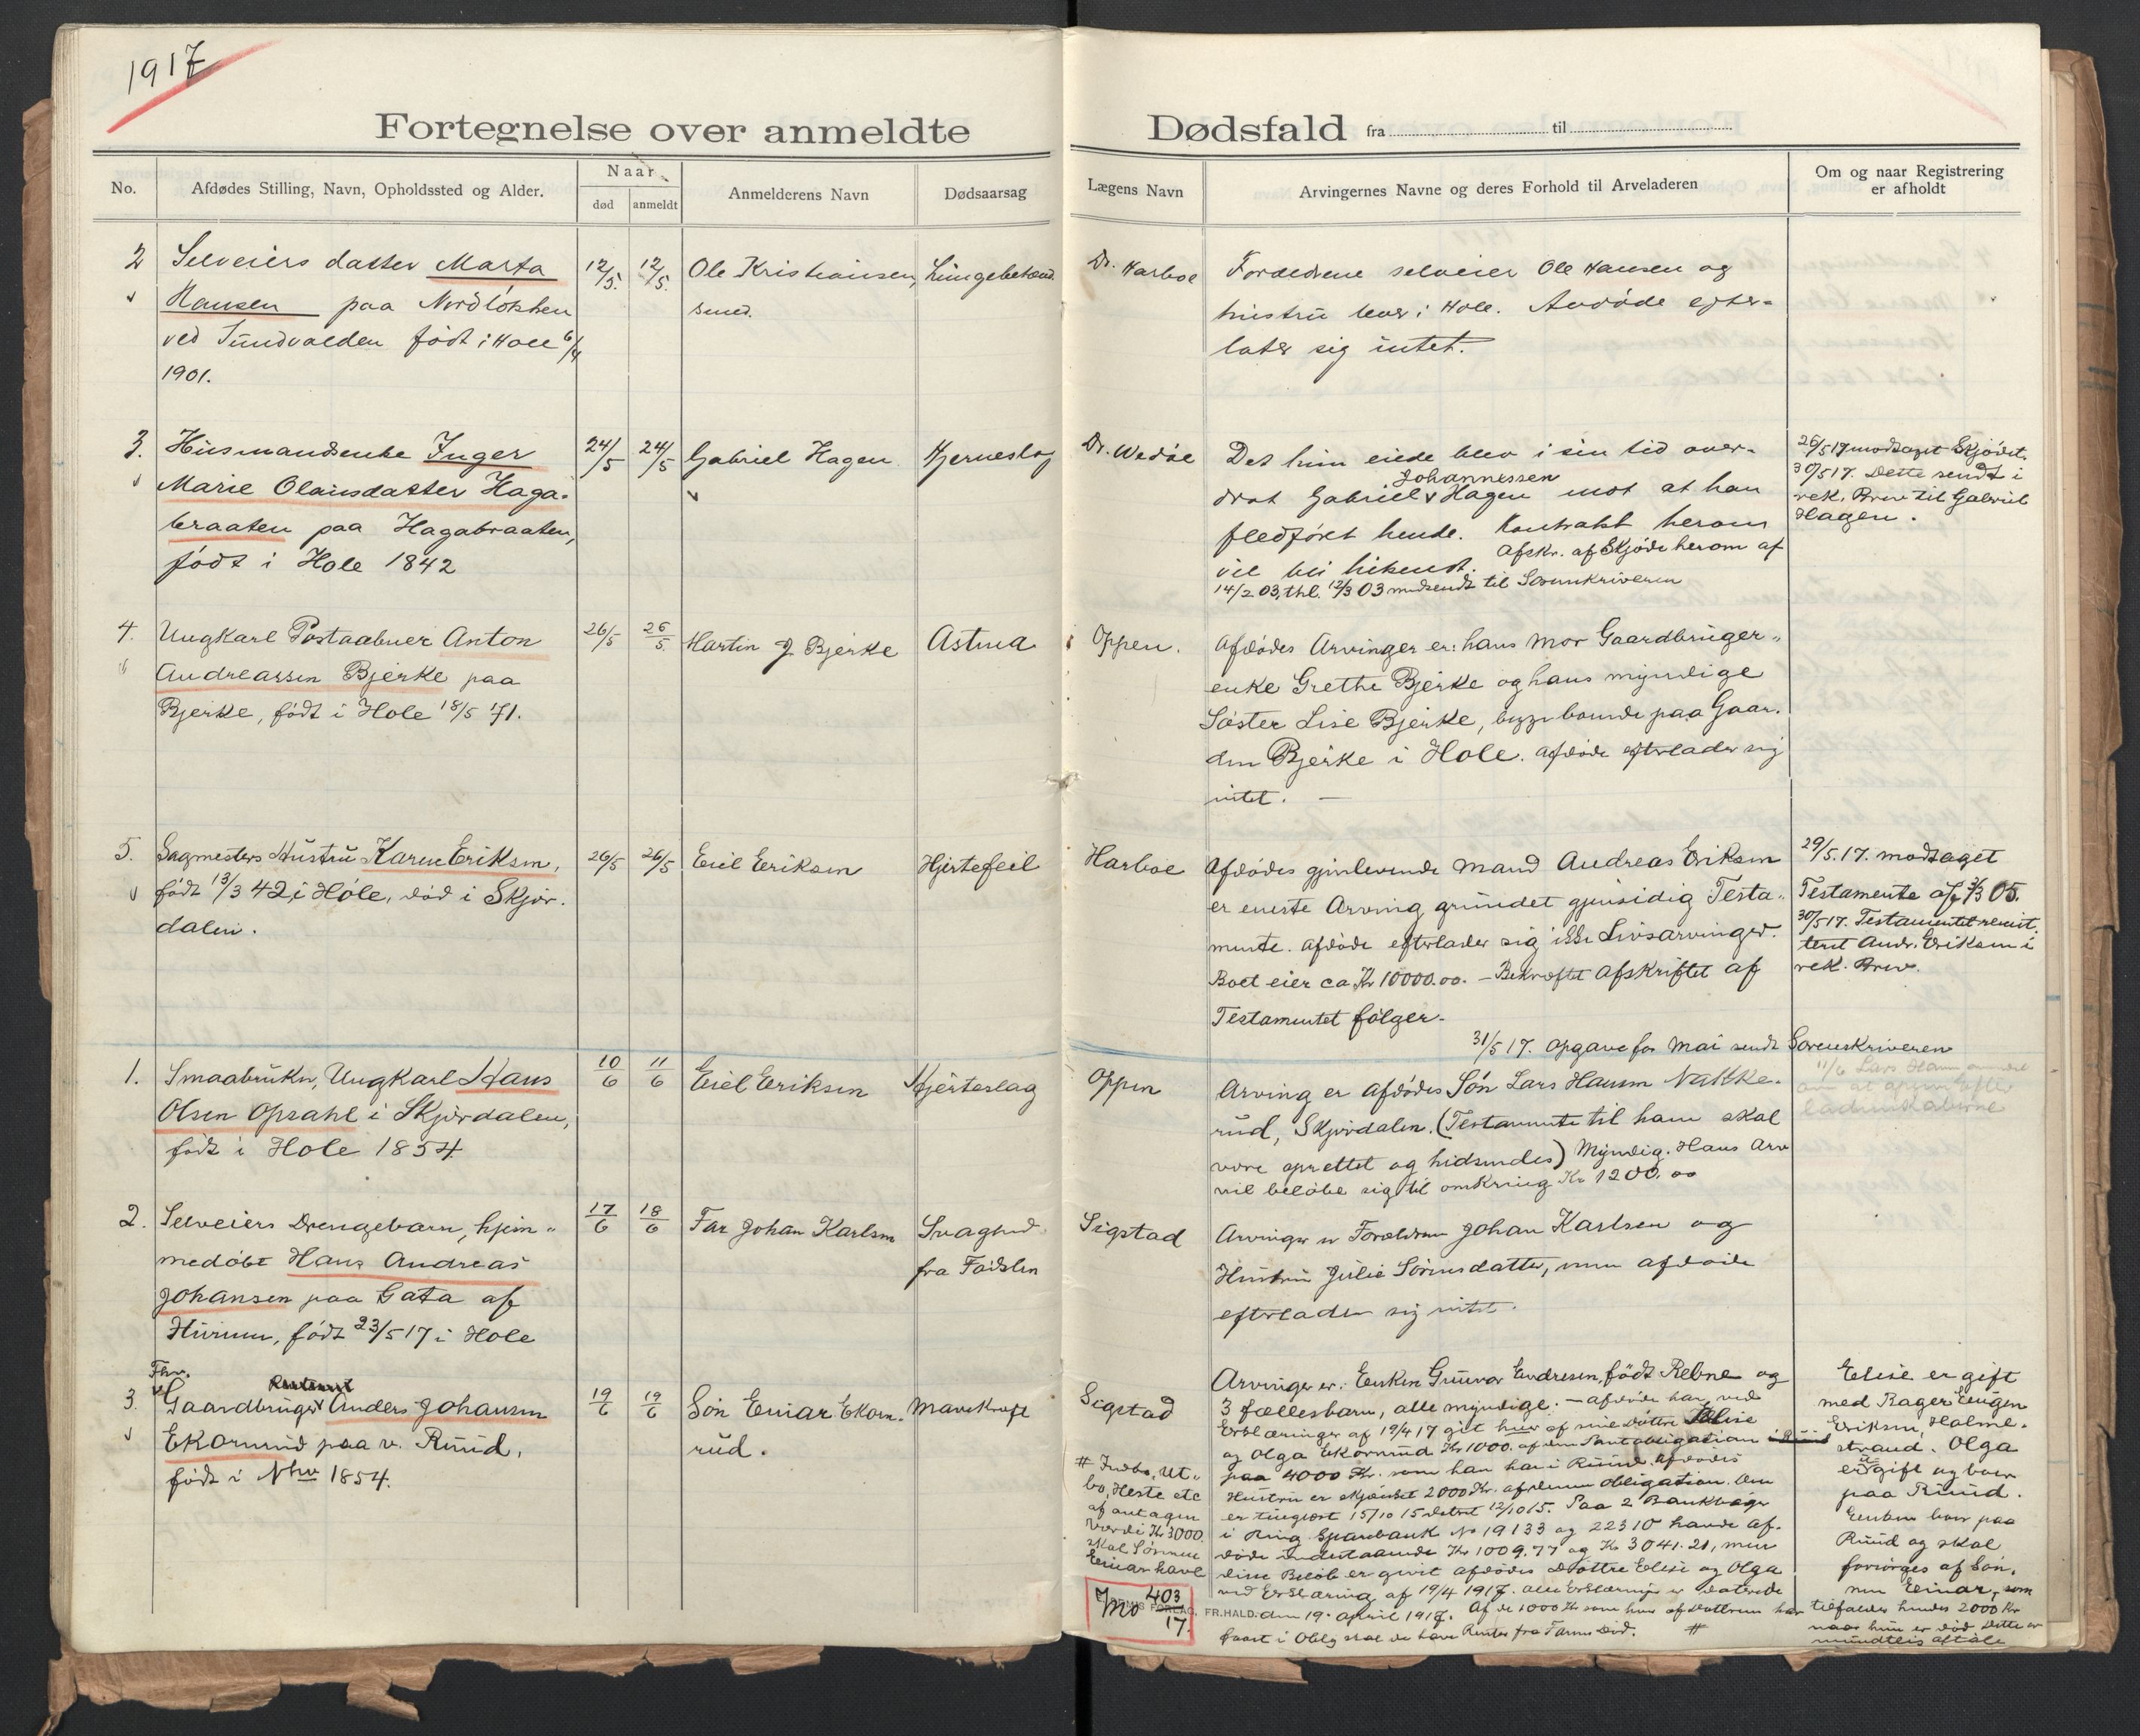 1917
Fortegnelse over anmeldte Dødsfald fra til
No.
Afdødes Stilling, Navn, Opholdssted og Alder.
Naar
død
anmeldt
Anmelderens Navn
Dødsaarsag
Lægens Navn
Arvingernes Navne og deres Forhold til Arveladeren
Om og naar Registrering
er afholdt
2
Selveiers datter Marta
Hansen paa
ved Sundvolden født i Hole 6/4
1901.
12/5.
12/5.
Ole Kristiansen,
smed.
Dr. Harboe
Forældrene selveier Ole Hansen og
hustru lever i Hole. Avdøde efter-
later sig intet.
3.
Husmandsenke Inger
Marie Olausdatter Haga-
braaten paa Hagabraaten,
født i Hole 1842
24/5
24/5
Gabriel Hagen
Hjerneslag
Dr. Wedøe
Det hun eiede blev i sin tid over-
drat Gabriel Johannessen Hagen mot at han
fledføret hende. Kontrakt herom
vil bli hitsendt. Afskr. af Skjøde herom af
14/2 03, thl. 12/3 03 medsendt til Sorenskriveren
26/5 17 modtaget Skjødet.
30/5 17. Dette sendt i
rek. Brev til Gabriel
Hagen.
4.
Ungkarl Postaabner Anton
Andreassen Bjerke paa
Bjerke, født i Hole 18/5 71.
26/5
26/5
Martin J. Bjerke
Astma
Oppen.
Afdødes Arvinger er: hans Mor Gaardbruger-
enke Grethe Bjerke og hans myndige
Søster Lise Bjerke, begge boende paa Gaar-
den Bjerke i Hole. Afdøde efterlader sig
intet. —
5.
Sagmesters Hustru Karen Eriksen,
født 13/3 42 i Hole, død i Skjør-
dalen.
26/5
26/5
Emil Eriksen
Hjertefeil
Harboe
Afdødes gjenlevende Mand Andreas Eriksen
er eneste Arving grundet gjensidig Testa-
mente. Afdøde efterlader sig ikke Livsarvinger.
Boet eier ca Kr 10000.00. — Bekræftet Afskriftet af
Testamentet følger.
29/5.17. modtaget
Testamente af 05.
30/5 17. Testamentet remit-
teret Andr. Eriksen i
rek. Brev.
31/5 17. Opgave for Mai sendt Sorenskriveren
1.
Smaabruker, Ungkarl Hans
Olsen Opsahl i Skjørdalen,
født i Hole 1854
10/6
11/6
Emil Eriksen
Hjerteslag
Oppen
Arving er afdødes Søn Lars Hansen Nakke-
rud, Skjørdalen. (Testamente til ham skal
være oprettet og hidsendes) Myndig. Hans Arv
vil beløbe sig til omkring Kr 1200.00
11/6 Lars Hansen
2.
Selveiers Drengebarn, hjem-
medøbt Hans Andreas
Johansen paa Gata af
Hurum, født 23/5 17 i Hole
17/6
18/6
Far Johan Karlsen
Svaghed
fra Fødslen
Sigstad
Arvinger er Forældrene Johan Karlsen og
Hustru Julie Sørensdatter, men afdøde
efterlader sig intet.
3.
Fhv.
Gaardbruger Anders Johansen
Ekornrud paa v. Ruud,
født i Nhv 1854.
19/6
19/6
Søn Einar Ekorn-
rud.
Mavekræft
Sigstad
Arvinger er: Enken Gunvor Endresen, født Rebne og
3 fællesbarn, alle myndige. — Afdøde har ved
Erklæringer af 19/4 17 git hver af sine Døttre Elise
og Olga Ekornrud Kr 1000. af den Pantobligation
paa 4000 Kr. som han har i Ruud. Afdødes
Hustru er skjænket 2000 Kr. af denne Obligation. Den
er tinglæst 15/10 15 datert 12/10 15. Paa 2 Bankbøger
i Ring. Sparebank No 19133 og 22310 havde af-
døde indestaaende Kr 1009.77 og Kr 3041.21, men
disse Beløb er givet afdødes Døttre Elise og Olga
ved Erklæring af 19/4 1917. Alle Erklæringer er daterede
den 19. April 1917. Af de 1000 Kr som hver af Døttrene har
faaet i Oblg skal de have Renter fra Farens Død. #
# Indbo, Ut-
bo, Heste etc
af antagen
Værdi Kr 3000.
skal Sønnen
Einar have
Elise er gift
med Bager Eugen
Eriksen, Holme-
strand. Olga
er gift og bor
paa Ruud.
Enken bor paa
Ruud og skal
forsørges af Søn-
nen Einar, som
tilfalder hendes 2000 Kr
naar hun er død. Dette er
mundtlig aftale
403
17.
FORLAG, FR.HALD.